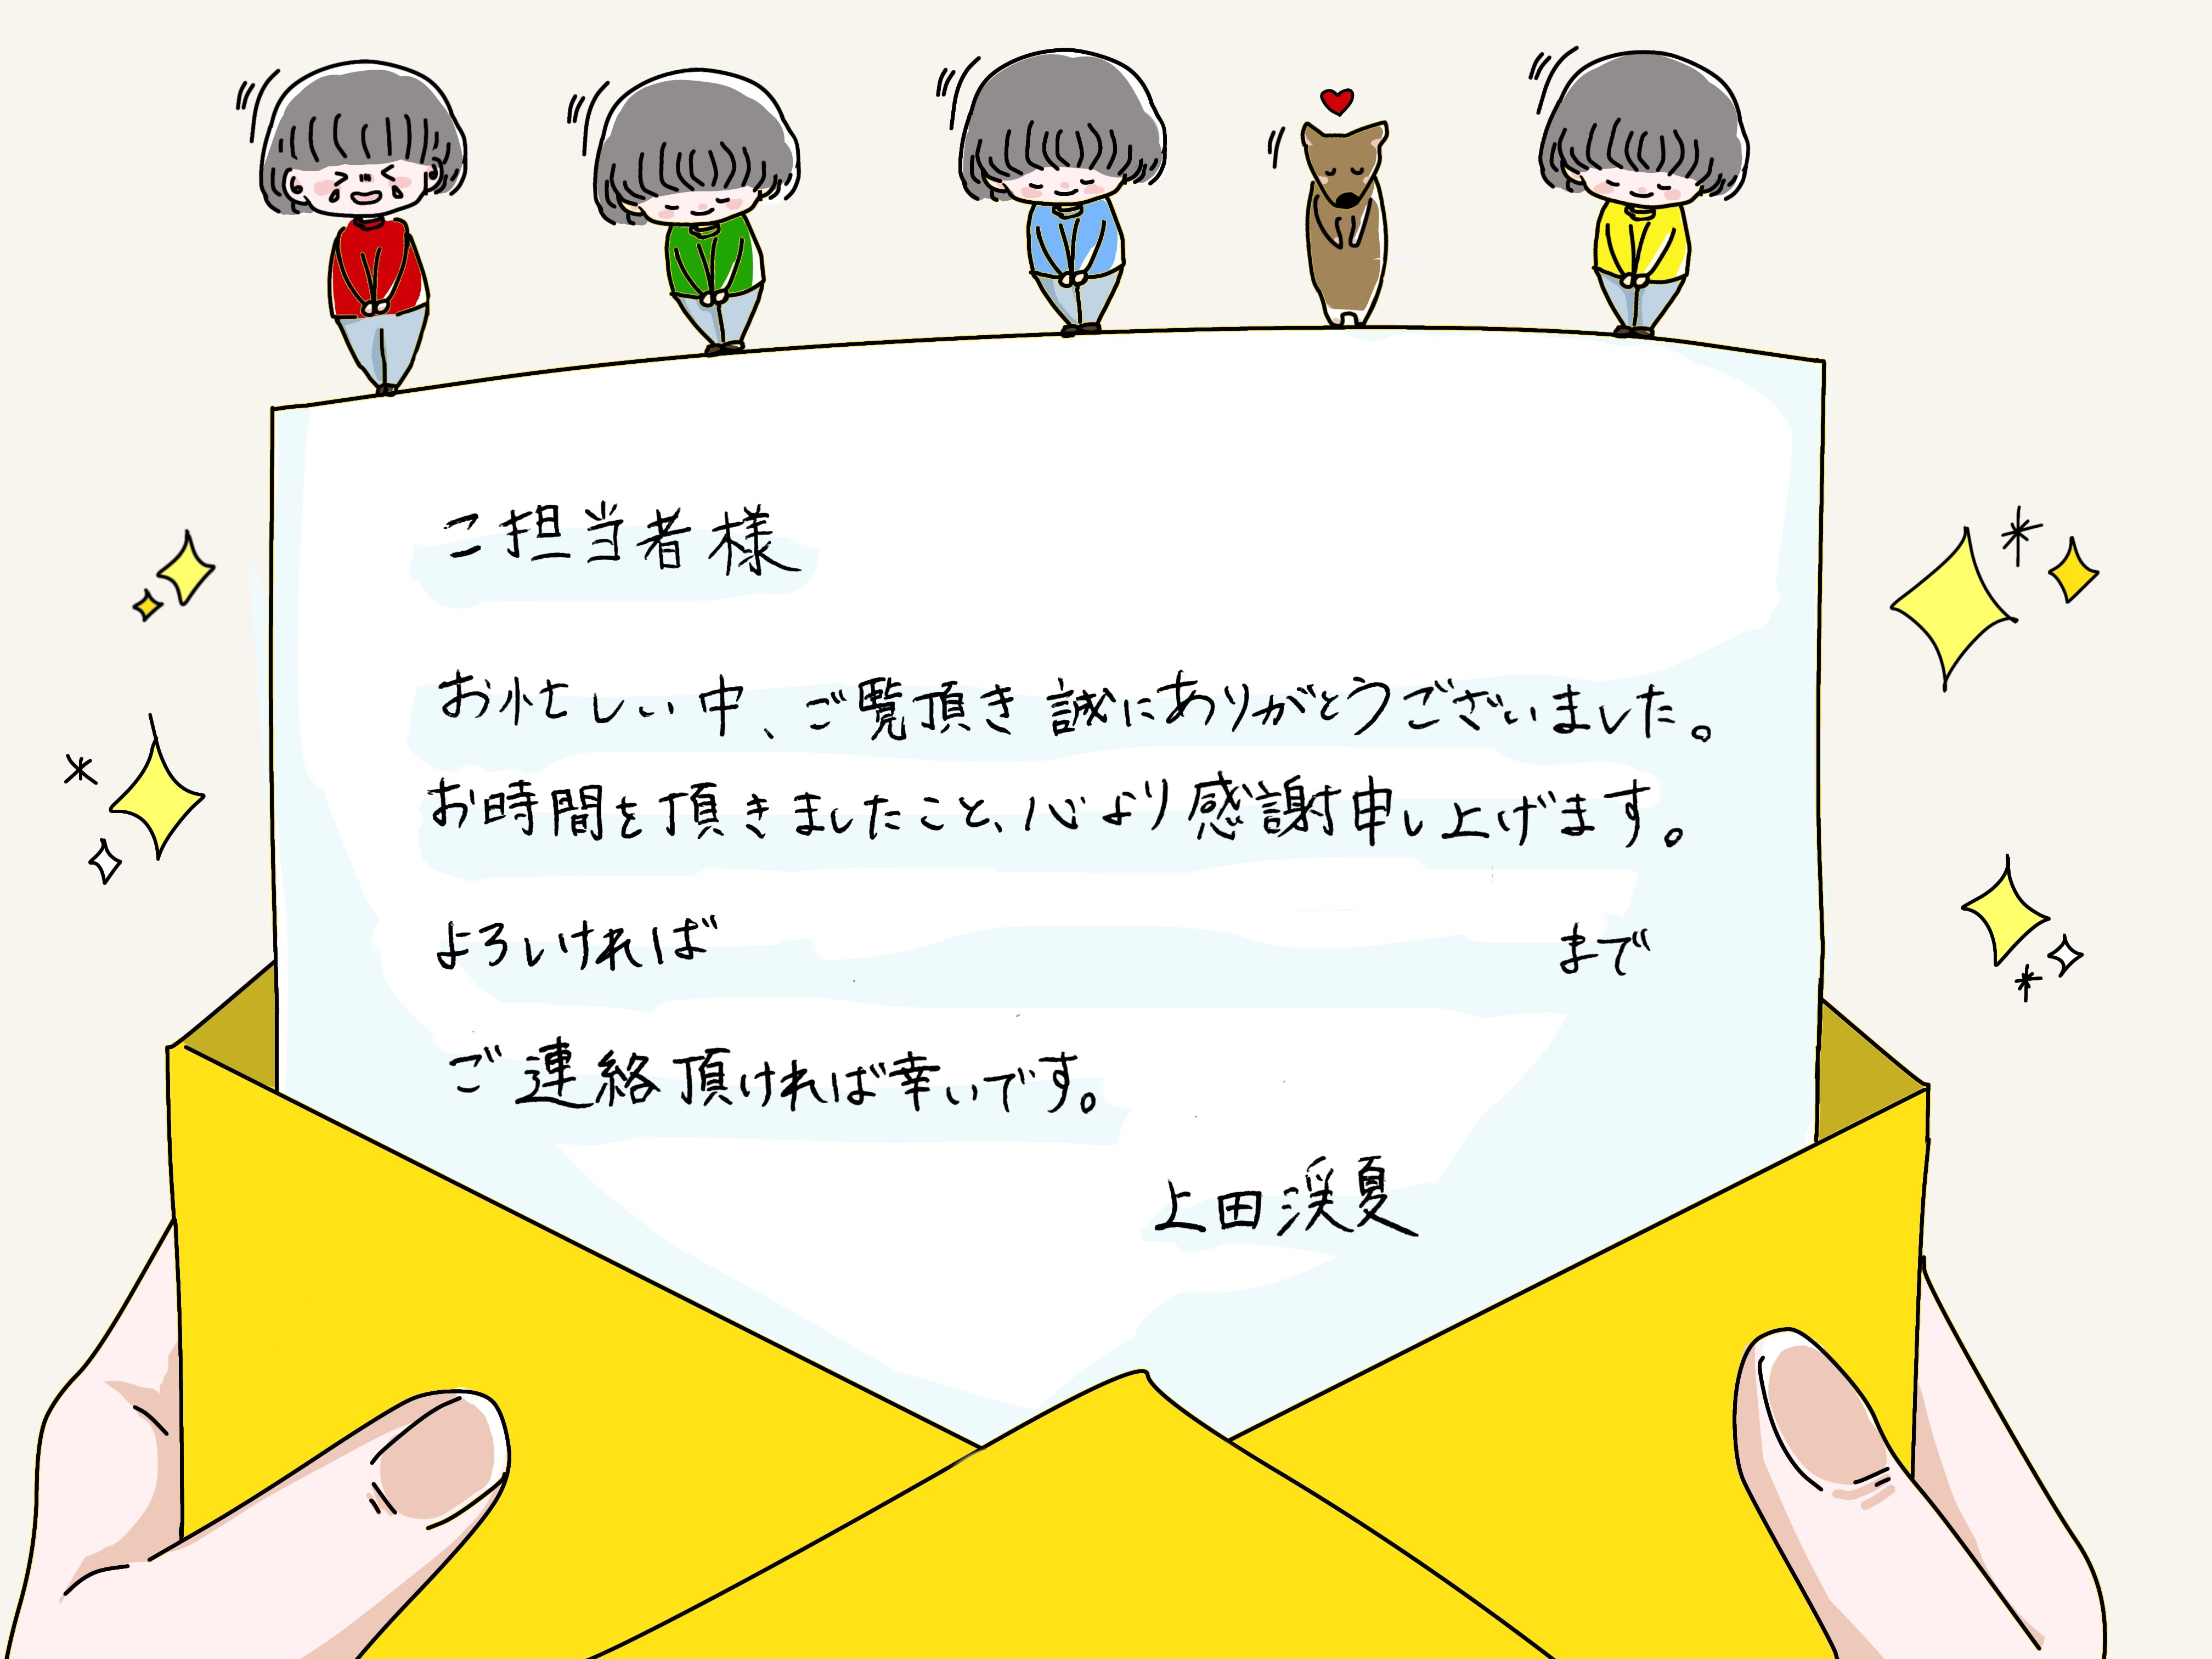 ご担当者様
お忙しい中、ご覧頂き誠にありがとうございました。
お時間を頂きましたこと、心より感謝申し上げます。
よろしければ まで
ご連絡頂ければ幸いです。
上田渓夏